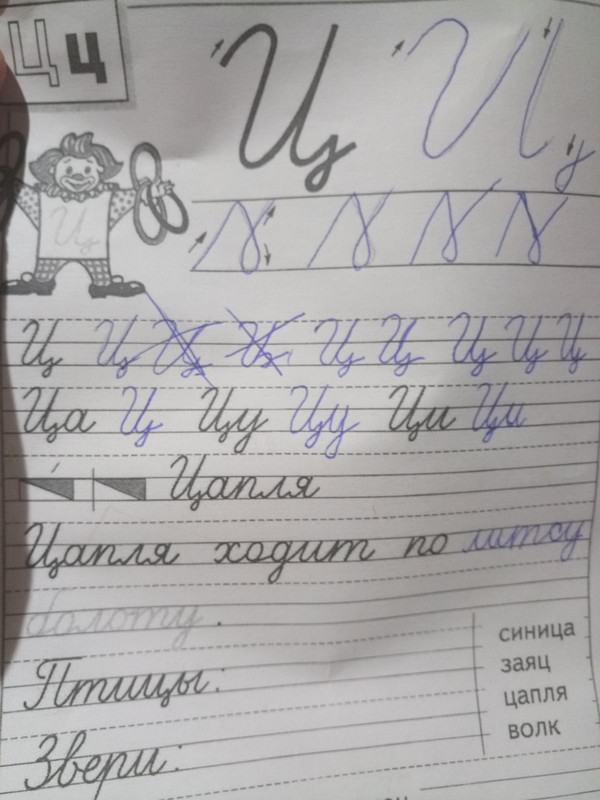 Ц ц
Ц
Ц
Ц Ц Ц Ц Ц Ц Ц Ц Ц
Ца Ц Цу Цу Ци Ци
Цапля
Цапля ходит по
болоту.
Птицы:
синица
заяц
цапля
волк
Звери: